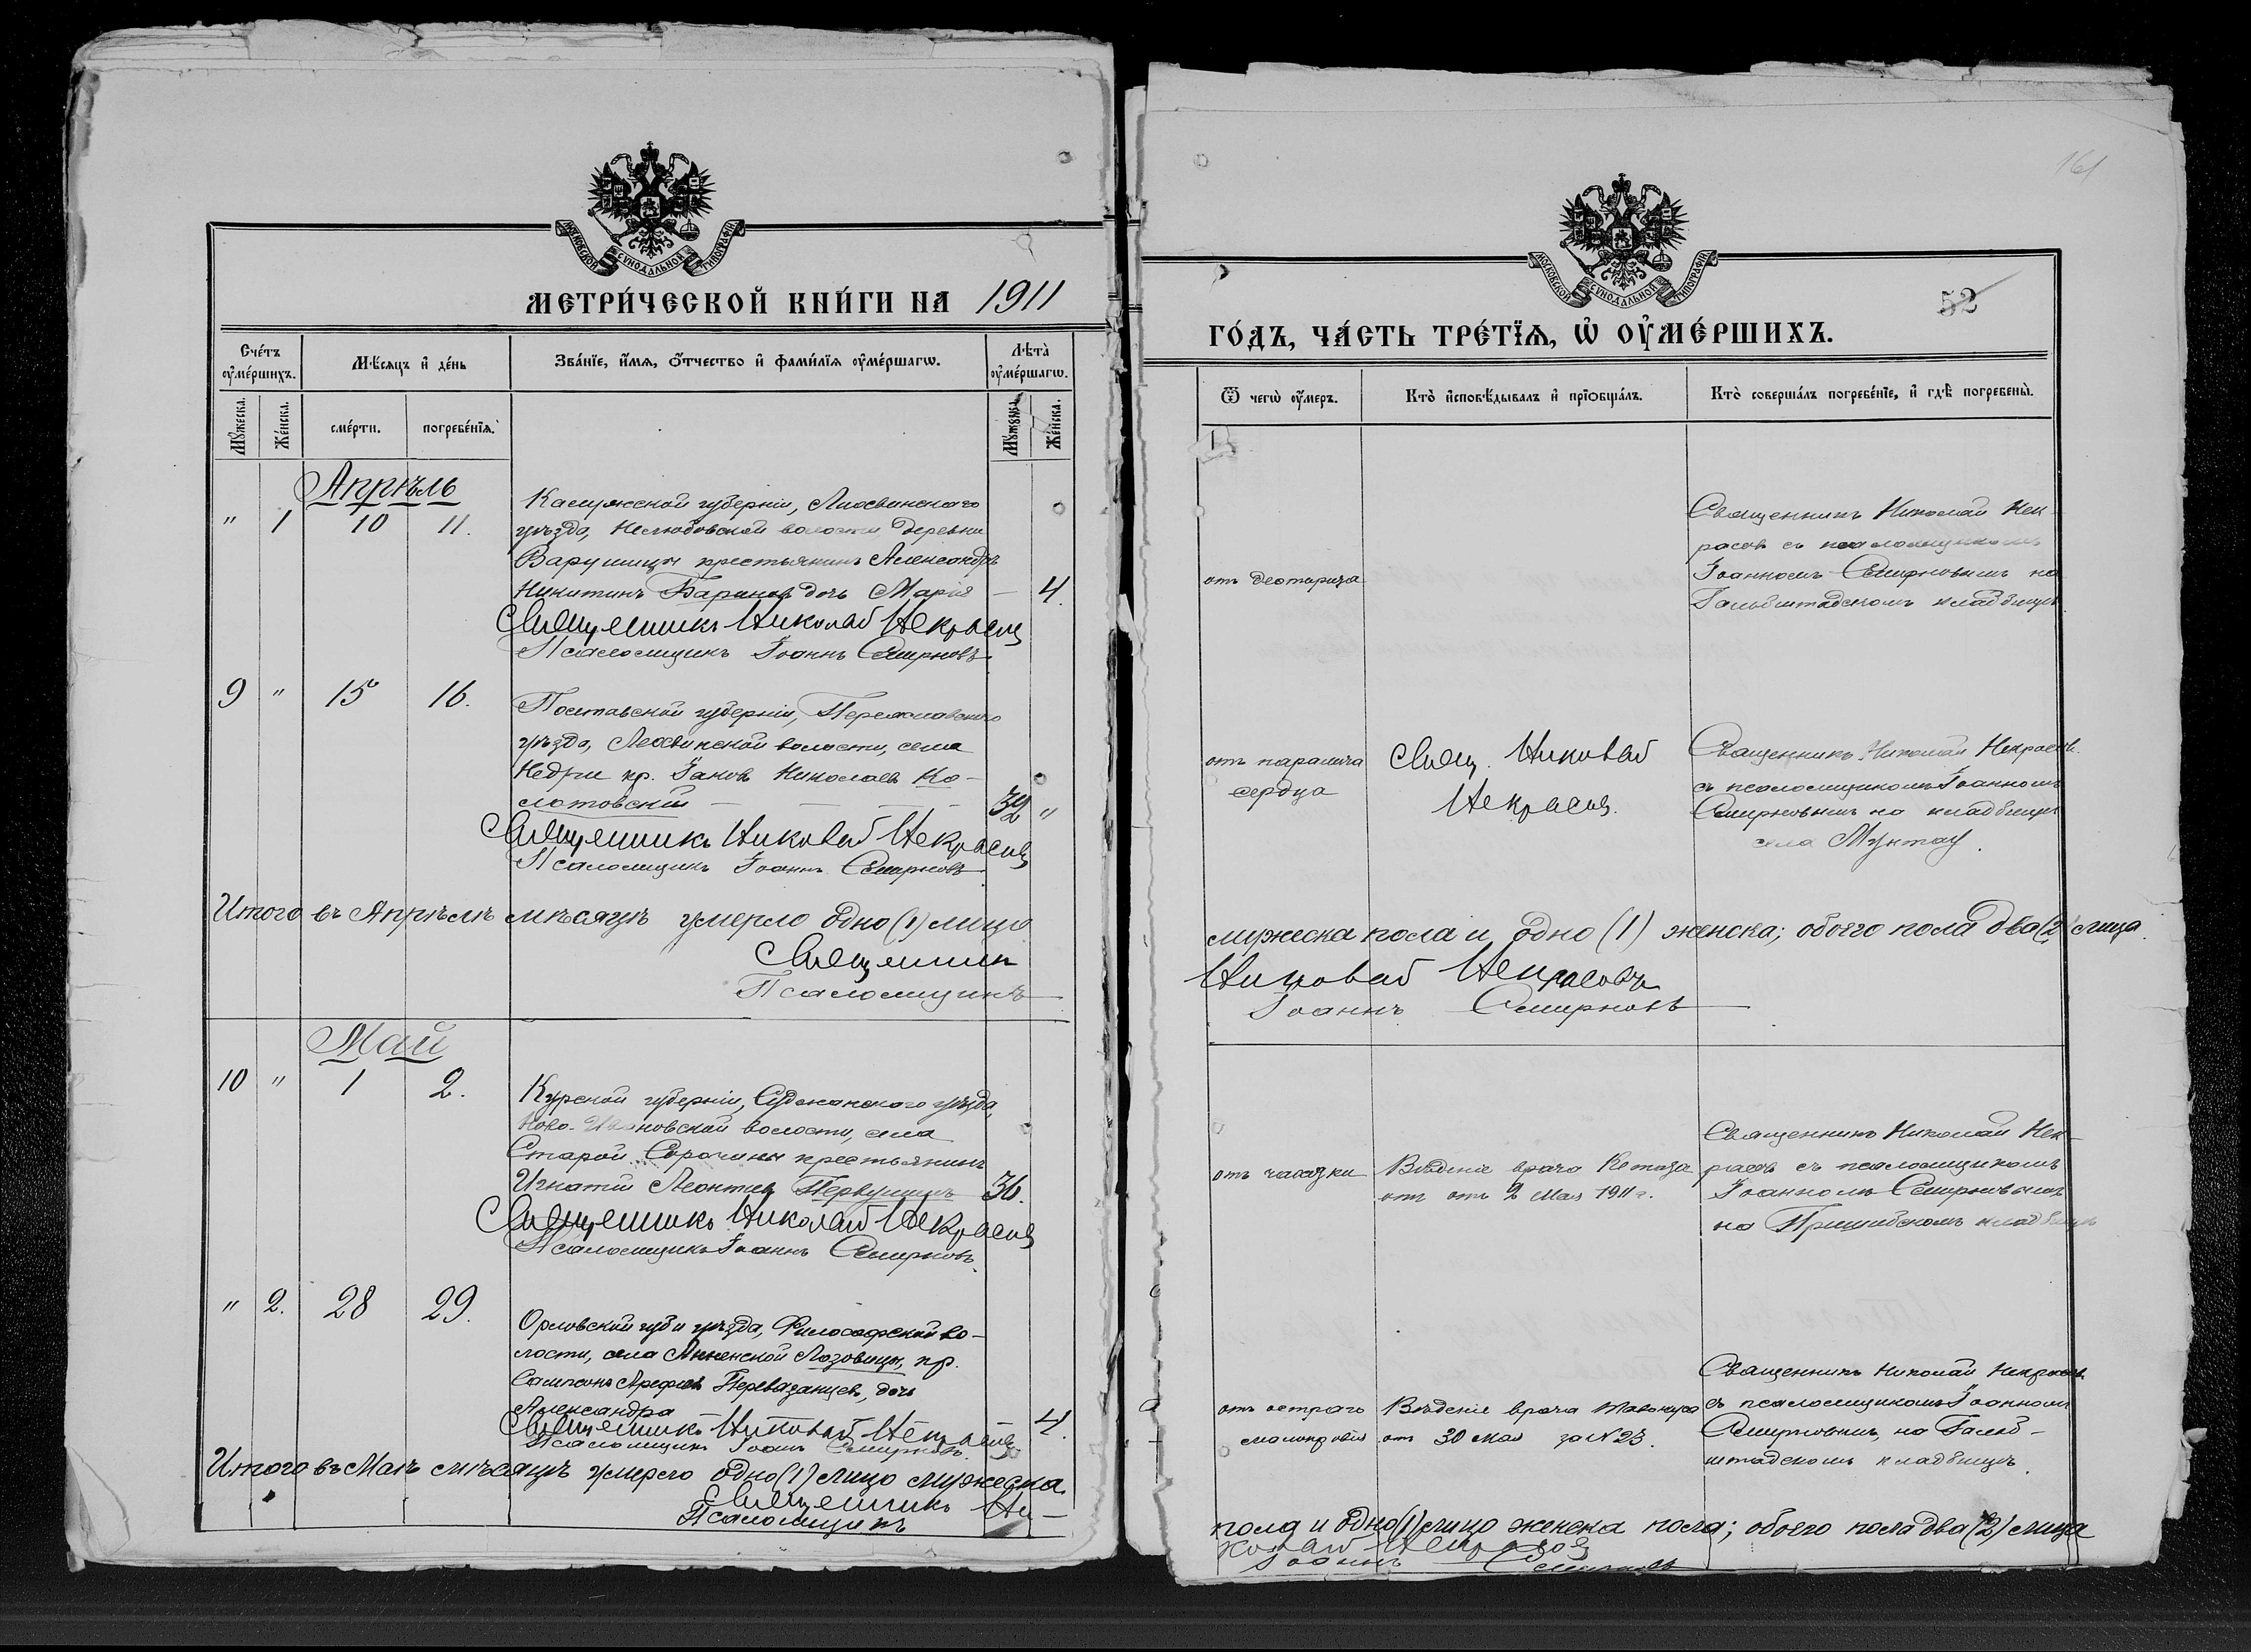 МОСКОВСКОЙ СѴНОДАЛЬНОЙ ТИПОГРАФІИ
МЕТРИ́ЧЕСКОЙ КНИ́ГИ НА 1911
Сче́тъ ᲂу҆ме́ршихъ.
Мѣ́сѧцъ и҆ де́нь
Зва́нїе, и҆́мѧ, ѻ҆́тчество и҆ фами́лїѧ ᲂу҆ме́ршагѡ.
Лѣта̀ ᲂу҆ме́ршагѡ.
Мꙋ́жеска.
Же́нска.
сме́рти.
погребе́нїѧ.
Мꙋ́жеска.
Же́нска.
Апрѣль
" 1 10 11.
Калужской губерніи,
уѣзда, волости деревни
крестьянинъ Александръ
Никитинъ Баринов дочь Марія — 4.
Священникъ Николай Некрасов
Псаломщикъ Іоаннъ Смирновъ
9 " 15 16.
Полтавской губерніи, Переяславского
уѣзда, волости, села
Недри кр. Іаков Николаев Ко-
лотовский — — — — 32 "
Священникъ Николай Некрасов
Псаломщикъ Іоаннъ Смирновъ
Итого въ Апрѣлѣ мѣсяцѣ умерло одно (1) лицо
Священник
Псаломщикъ
Май
10 " 1 2.
Курской губерніи, Суджанского уѣзда,
Ново-Ивановской волости, села
Старой Сорочины крестьянинъ
Игнатий Леонтьев 36.
Священникъ Николай Некрасов
Псаломщикъ Іоаннъ Смирновъ
" 2. 28 29.
Орловской губ и уѣзда, Философской во-
лости, села Лозовицы, кр.
Сампсона Арефьев Перевязанцев, дочь
Александра — — — 4.
Священникъ Николай Некрасов
Псаломщикъ Іоанн Смирновъ.
Итого въ Маѣ мѣсяцѣ умерло одно (1) лицо мужеска.
Священникъ Ни-
Псаломщикъ
161
МОСКОВСКОЙ СѴНОДАЛЬНОЙ ТИПОГРАФІИ
52
ГО́ДЪ, ЧА́СТЬ ТРЕ́ТЇѦ, Ѡ҆ ОУ҆МЕ́РШИХЪ.
Ѿ чегѡ̀ ᲂу҆́меръ.
Кто̀ и҆сповѣ́дывалъ и҆ прїѡбща́лъ.
Кто̀ соверша́лъ погребе́нїе, и҆ гдѣ̀ погребены̀.
Священникъ Николай Нек-
расов съ псаломщикомъ
Іоанном Смирновымъ на
Гальбштадском кладбищѣ
от
от паралича
сердца
Свящ. Николай
Некрасов.
Священникъ Николай Некрасов.
съ псаломщикомъ Іоанномъ
Смирновымъ на кладбищѣ
села Мунтау.
мужеска пола и одно (1) женска; обоего пола два (2) лица.
Николай Некрасовъ
Іоаннъ Смирновъ
от чахотки
Вѣдѣніе врача
от 2 Мая 1911 г.
Священникъ Николай Нек-
расов съ псаломщикомъ
Іоанномъ Смирновымъ
на Пришибском кладбищѣ
от остраго
малокровія
Вѣдѣніе врача
от 30 мая за № 23.
Священникъ Николай Некрасов
съ псаломщикомъ Іоанном
Смирновымъ, на Гальб-
штадскомъ кладбищѣ.
пола и одно (1) лицо женска пола; обоего пола два (2) лица
колай Некрасов
Іоаннъ Смирновъ